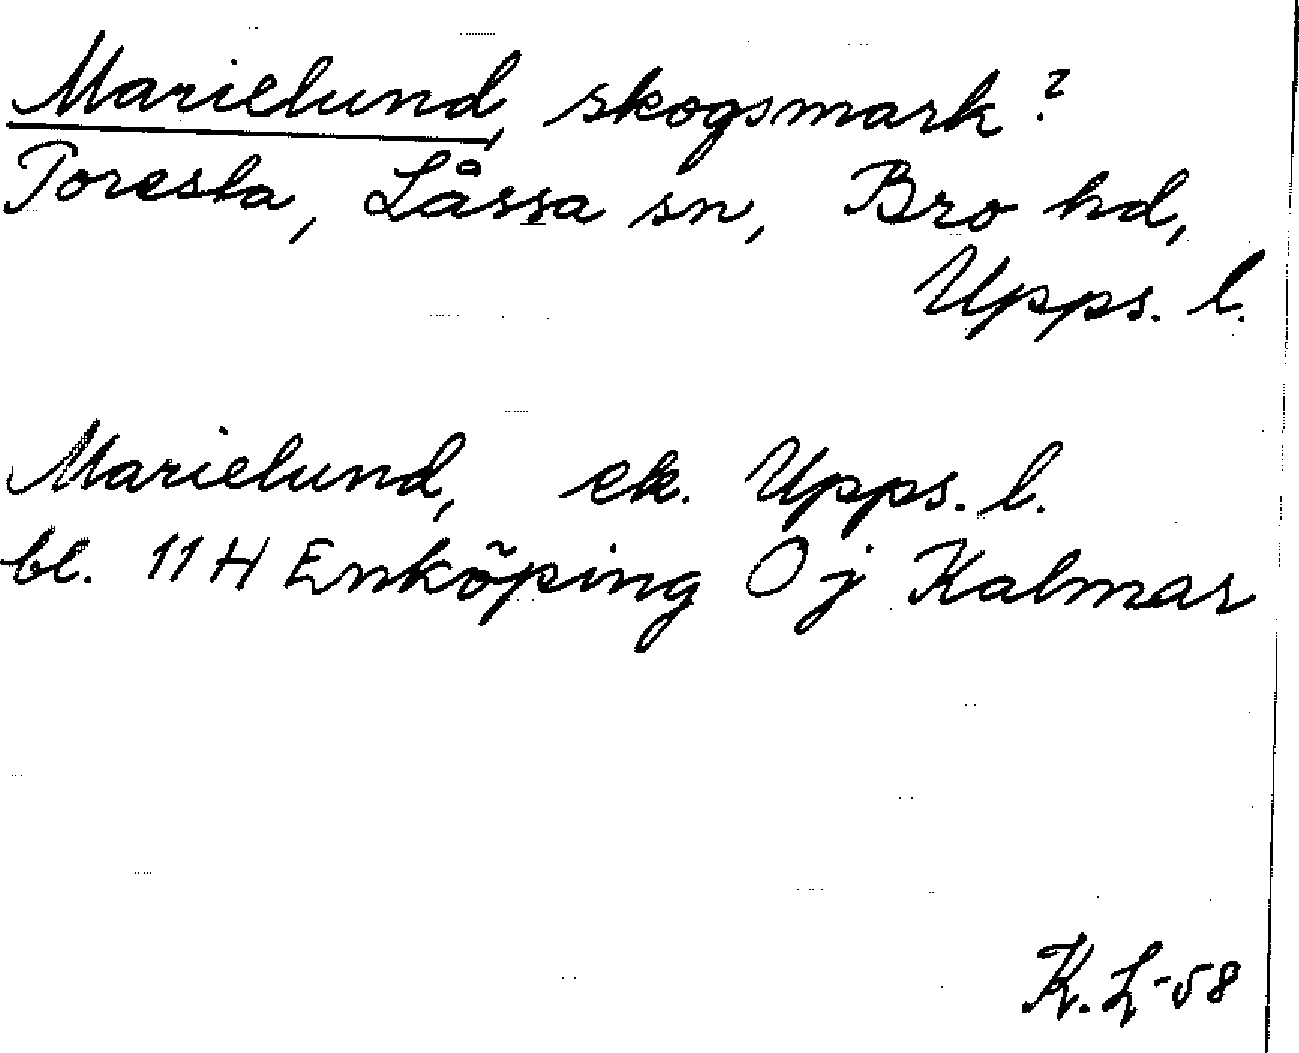 Marielund, skogsmark?
Toresta, Låssa sn, Bro hd,
Upps. l.
Marielund, ek. Upps. l.
bl. 11 H Enköping 0 j Kalmar
K. L-58